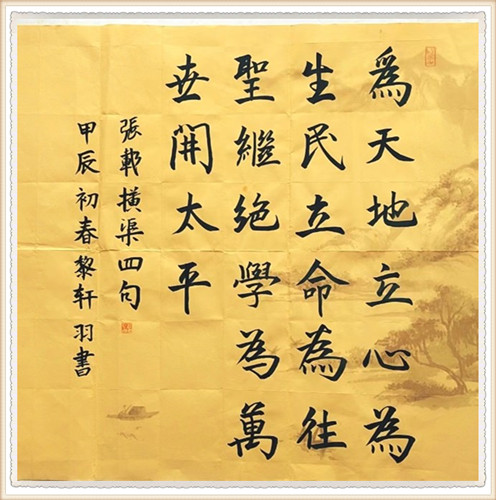 爲天地立心為
生民立命為往
聖繼絶學為萬
世開太平
張載横渠四句
甲辰初春黎轩羽書